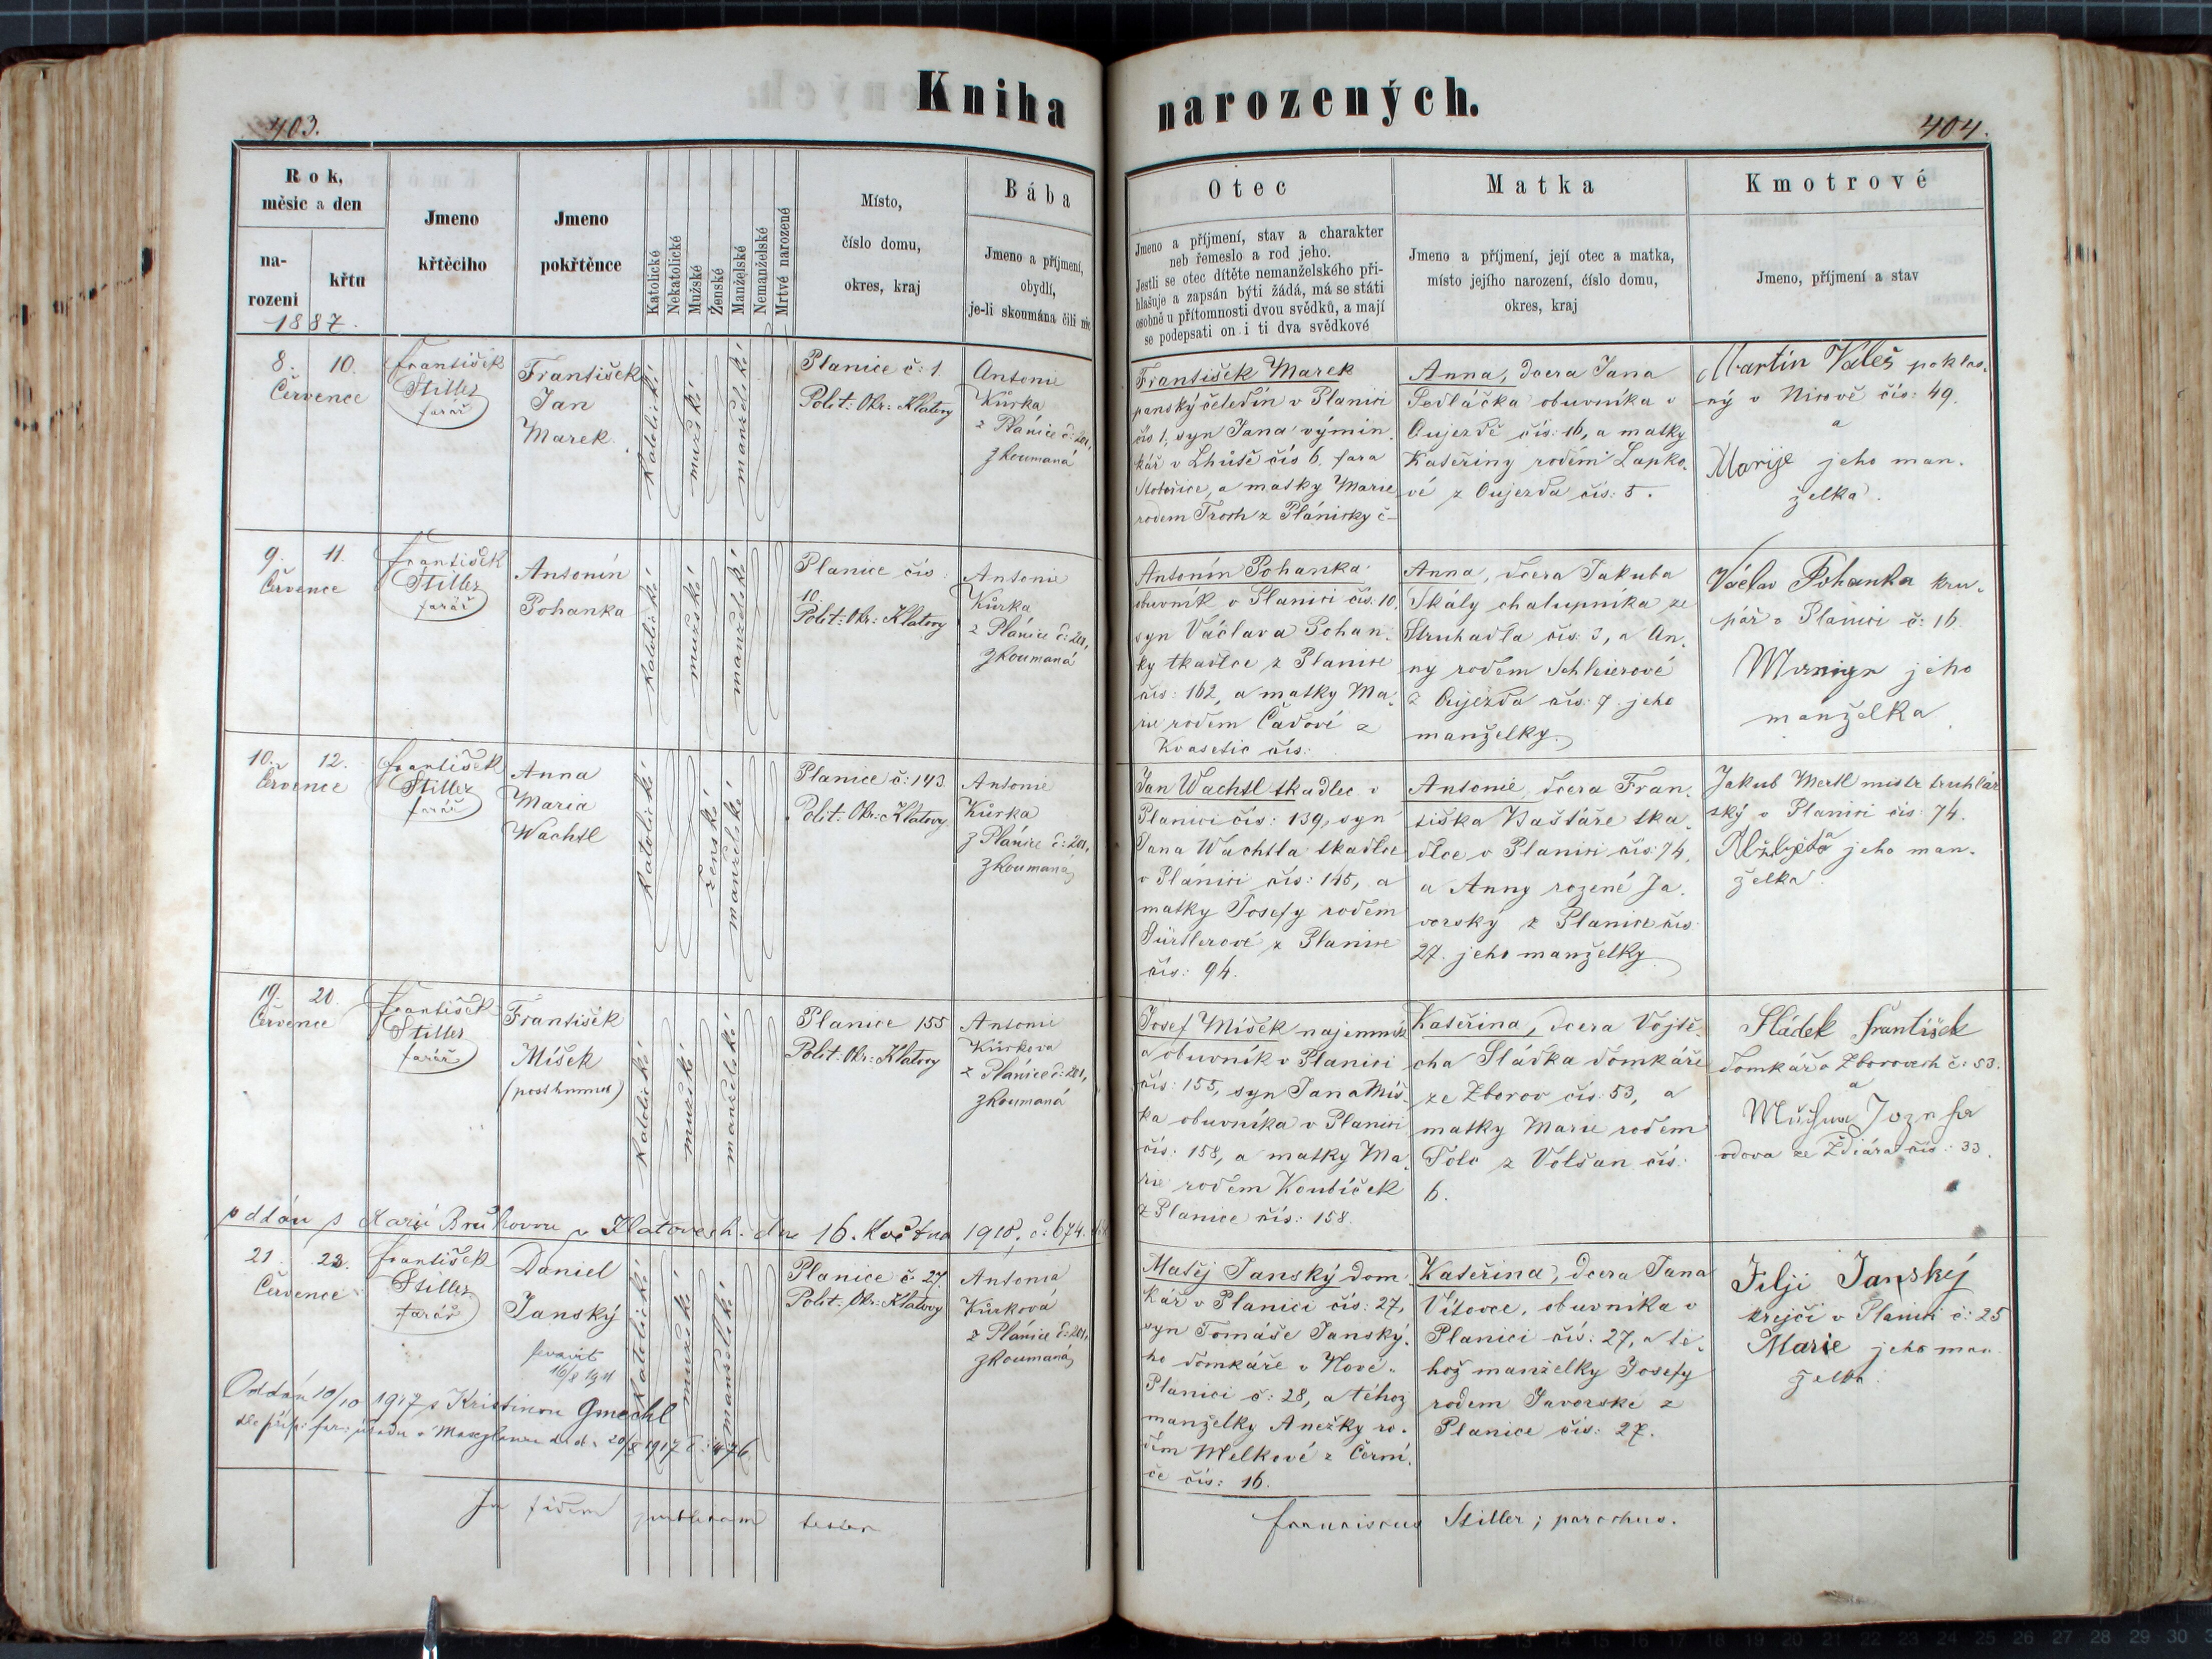 Kniha
narozených.
403.
404.
Rok,
měsíc a den
na-
rození
křtu
1887.
Jmeno
křtěcího
Jmeno
pokřtěnce
Katolické
Nekatolické
Mužské
Ženské
Manželské
Nemanželské
Mrtvé narozené
Místo,
číslo domu,
okres, kraj
Bába
Jmeno a příjmení,
obydlí,
je-li skoumána čili nic
Otec
Jmeno a příjmení, stav a charakter
neb řemeslo a rod jeho.
Jestli se otec dítěte nemanželského při-
hlašuje a zapsán býti žádá, má se státi
osobně u přítomnosti dvou svědků, a mají
se podepsati on i ti dva svědkové
Matka
Jmeno a příjmení, její otec a matka,
místo jejího narození, číslo domu,
okres, kraj
Kmotrové
Jmeno, příjmení a stav
8. 10.
Července
František
Stiller
farář
František
Jan
Marek
katolické
mužské
manželské
Planice č: 1.
Polit: Okr: Klatovy
Antonie
Kůrka
z Plánice č: 201,
zkoumaná
František Marek
panský čeledín v Planici
čís 1, syn Jana výmin
kář v Lhůtě čís 6. fara
a matky Marie
rodem z Pláničky č
Anna, dcera Jana
Sedláčka obuvníka v
Oujezdě čís: 16, a matky
Kateřiny rodem Lapko
vé z Oujezda čís: 5.
Martin Valeš poklas
ný v Nicově čís: 49.
a
Marije jeho man-
želka.
9. 11.
Července
František
Stiller
farář
Antonín
Pohanka
katolické
mužské
manželské
Planice čís:
10.
Polit: Okr: Klatovy
Antonie
Kůrka
z Plánice č: 201,
zkoumaná
Antonín Pohanka
obuvník v Planici čís. 10.
syn Václava Pohan
ky tkadlce z Planice
čís: 162, a matky Ma
rie rodem Čadové z
Kvasetic čís:
Anna, dcera Jakuba
Skály chalupníka ze
Struhadla čís: 3, a An
ny rodem Schleierové
z Oujezda čís: 7. jeho
manželky.
Václav Pohanka kru-
pař v Plánici č: 16.
jeho
manželka
10. 12.
Července
František
Stiller
farář
Anna
Maria
Wachtl
katolické
ženské
manželské
Planice č: 143.
Polit: Okr: Klatovy
Antonie
Kůrka
z Plánice č: 201,
zkoumaná
Jan Wachtl tkadlec v
Planici čís: 139, syn
Jana Wachtla tkadlce
v Plánici čís: 145, a
matky Josefy rodem
Dürtlerové z Planice
čís: 94.
Antonie, dcera Fran
tiška Kaštáře tka
dlce v Planici čís: 74,
a Anny rozené Ja
vorský z Planice čís
27. jeho manželky
Jakub Mertl mistr truhlář
ský v Planici čís: 74.
a
Alžbjeta jeho man-
želka.
19. 20.
Července
František
Stiller
farář
František
Míšek
(posthumus)
katolické
mužské
manželské
Planice 155
Polit: Okr: Klatovy
Antonie
Kůrkova
z Plánice č: 201,
zkoumaná
Josef Míšek najemník
a obuvník v Planici
čís: 155, syn Jana Míš
ka obuvníka v Planici
čís: 158, a matky Ma
rie rodem Koubíček
z Planice čís: 158.
Kateřina, dcera Vojtě
cha Sládka domkáře
ze Zborov čís: 53, a
matky Marie rodem
z Volšan čís:
6.
Sládek František
domkář v Zborovech č: 53.
a
vdova ze Ždiára čís: 33.
oddán s Marií v Klatovech dne 16. května 1910, č: 674.
21. 23.
Července
František
Stiller
farář
Daniel
Janský
katolické
mužské
manželské
Planice č: 27.
Polit: Okr: Klatovy
Antonia
Kůrková
z Plánice č: 201,
zkoumaná
Oddán 10/10 1917 s Kristinou Gmachl
Matěj Janský dom
kář v Planici čís: 27,
syn Tomáše Janský
ho domkáře v Nové
Planici č: 28, a téhož
manželky Anežky ro
dem Melkové z Černí
če čís: 16.
Kateřina, dcera Jana
Vítovce, obuvníka v
Planici čís: 27, a té
hož manželky Josefy
rodem Javorské z
Planice čís: 27.
Filip Janský
krejčí v Planici č: 25
Marie jeho man
želka.
In fidem publicam
Franciscus Stiller; parochus.